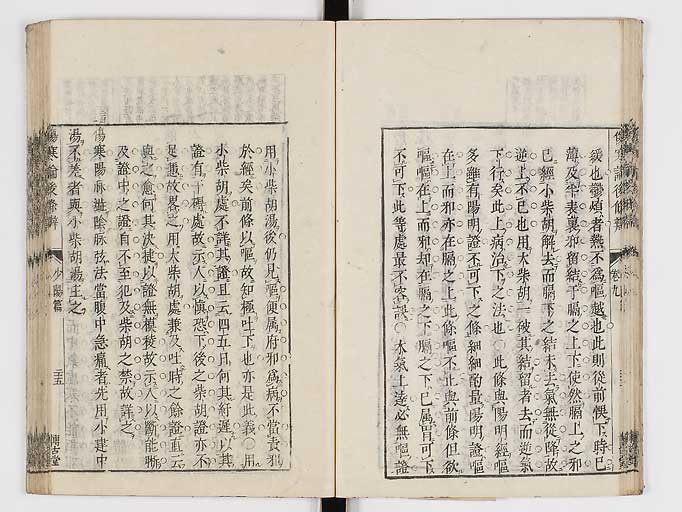 緩也鬱煩者熱不爲嘔越也此則從前悞下時已
薄及半表裏邪留結于膈之上下使然膈上之邪
已經小柴胡解去而膈下之結未去氣無從降故
逆上不已也用大柴胡一彼其結留者去而逆氣
下行矣此上病治下之法也○此條與陽明經嘔
多雖有陽明證不可下之條細細酌量陽明證嘔
在上而邪亦在膈之上此條嘔不止與前條但欲
嘔嘔在上而邪却在膈之下膈之下已屬胃可下
不可下此等處最不容誤○水氣上逆必無嘔證
用小柴胡湯後仍見嘔便屬府邪爲病不當責邪
於經矣前條以嘔故知極吐下也亦是此義○用
小柴胡處不詳其證且云四五日何其紆遲以其
證有干礙處故示人以慎恐下後之柴胡證亦不
足憑故畧之用大柴胡處兼及吐時之餘證直云
與之愈何其決捷以證無模稜故示人以斷能晰
及證中之證自不至犯及柴胡之禁故詳之
傷寒陽脉濇陰脉弦法當腹中急痛者先用小建中
湯不差者與小柴胡湯主之
傷寒論後條辨
少陽篇
三五
博古堂